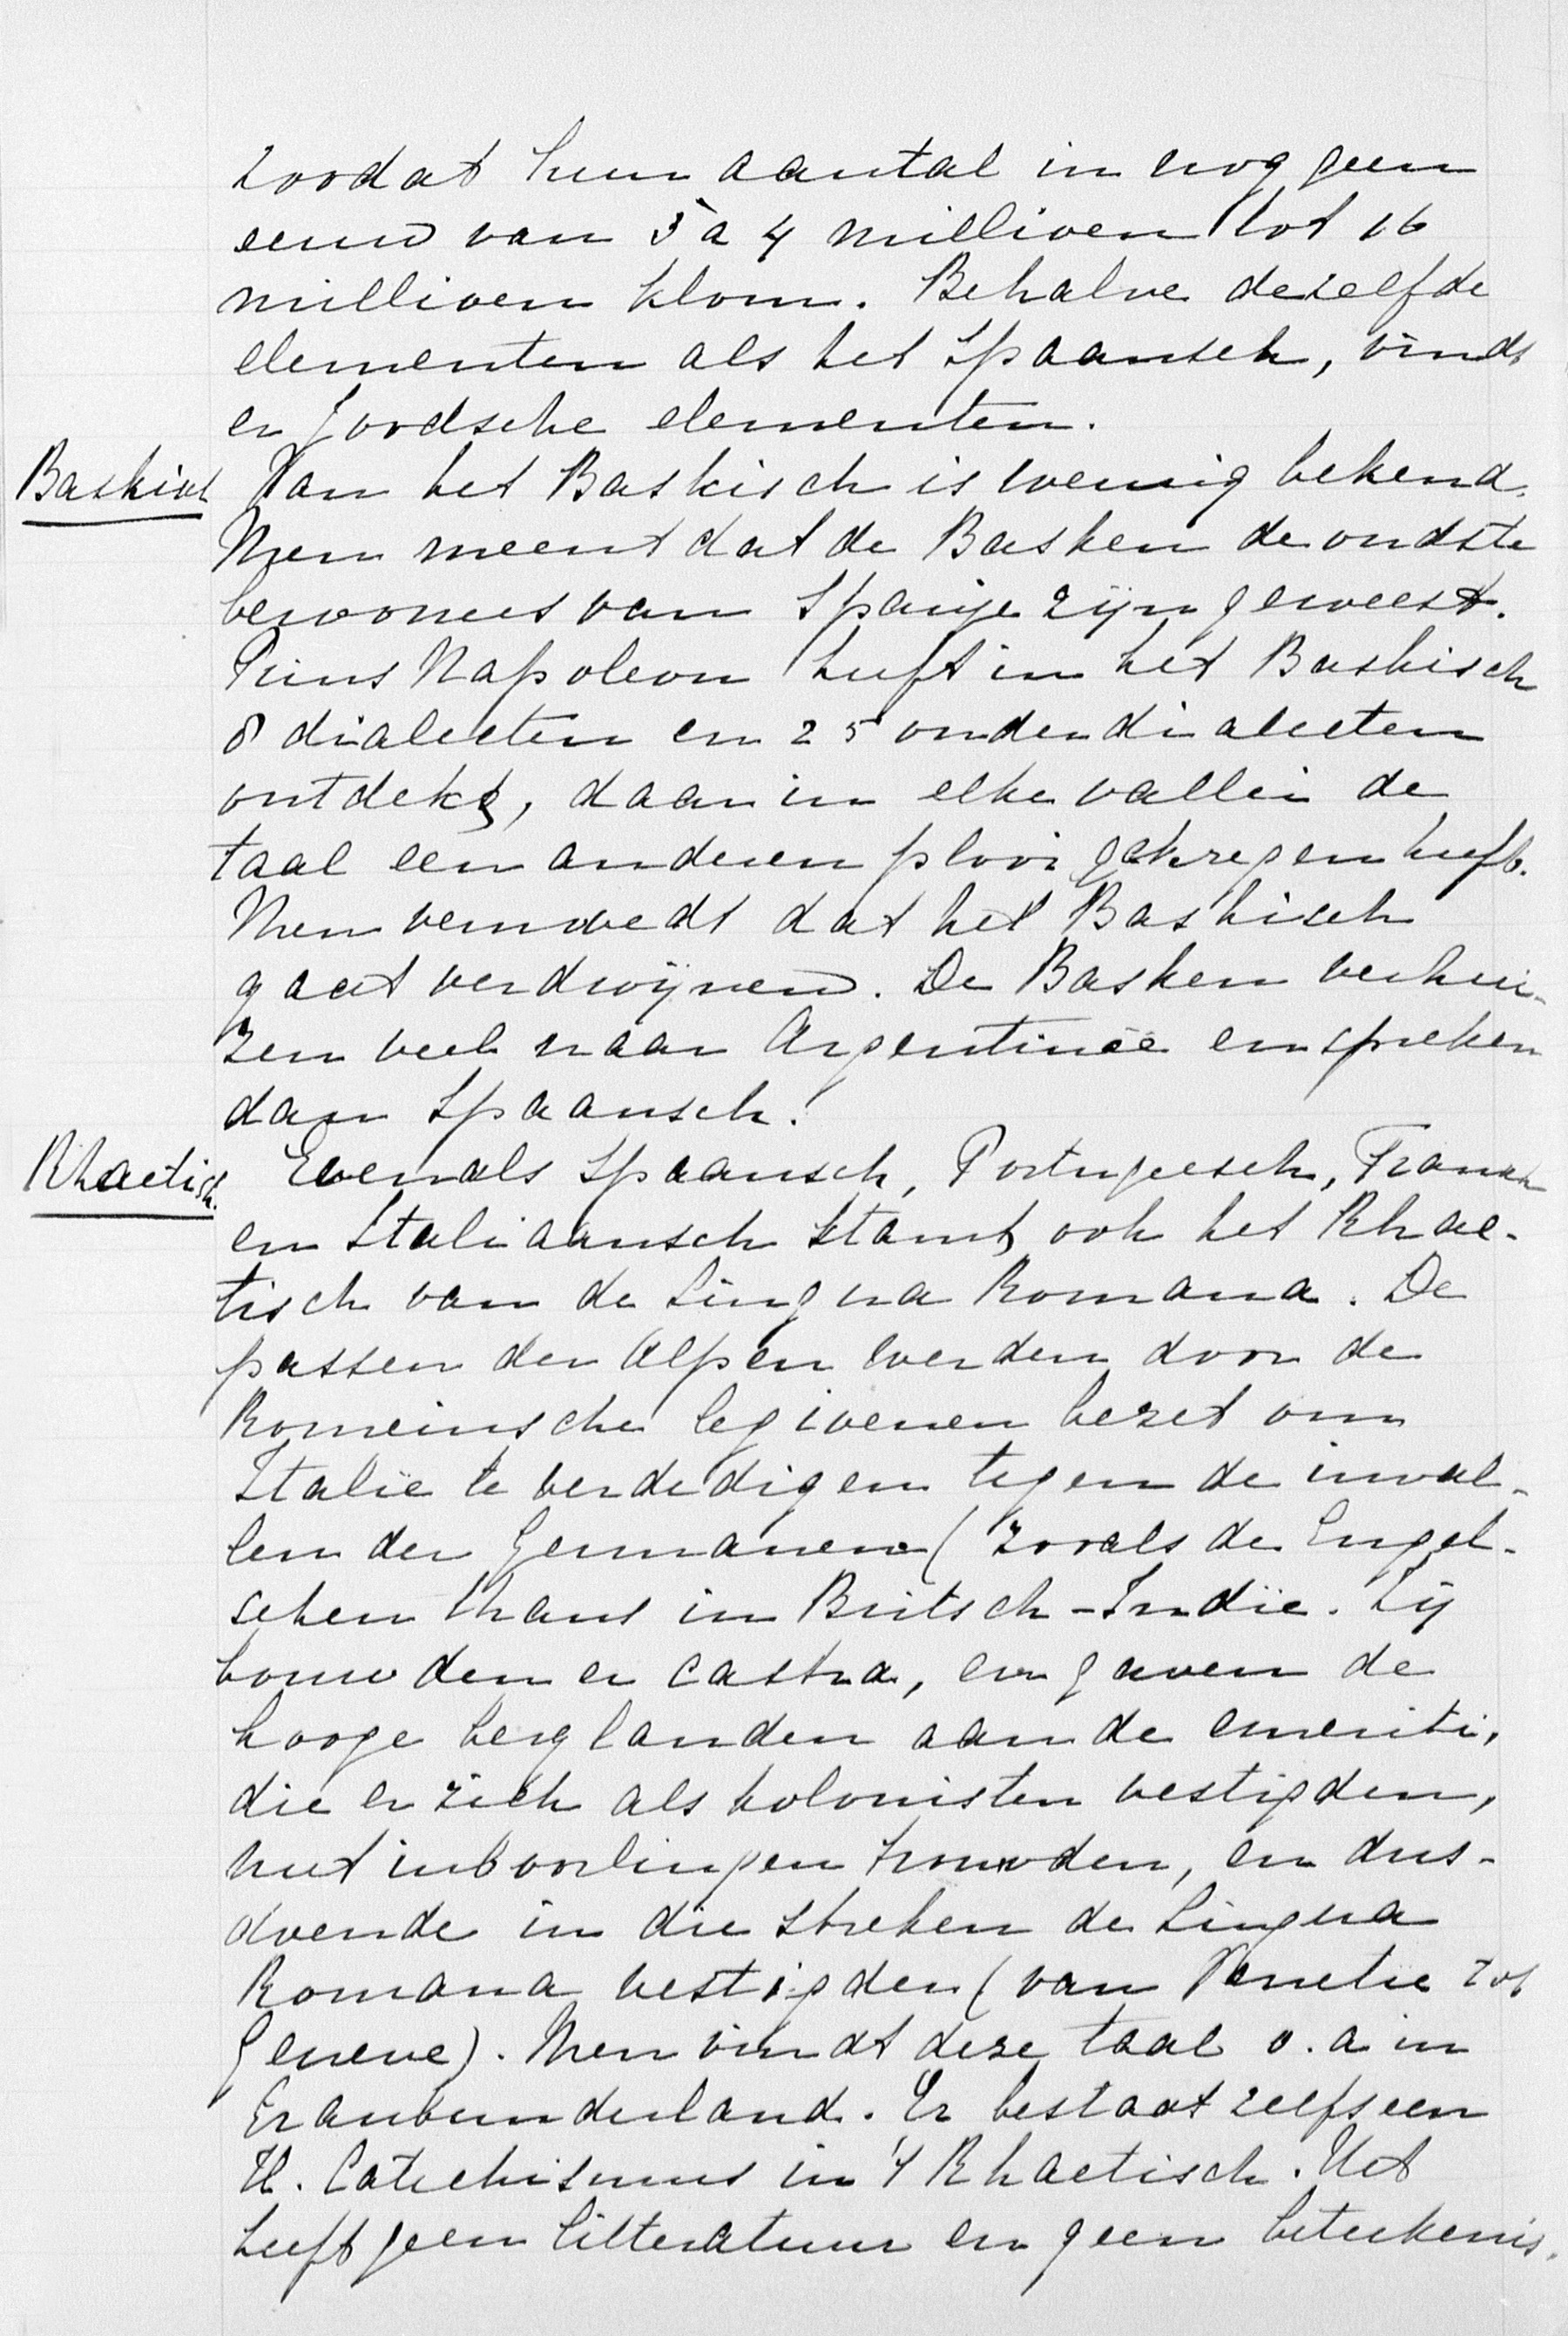 zoodat hun aantal in nog geen
eeuw van 3 à 4 millioen tot 16
millioen klom. Behalve dezelfde
elementen als het Spaansch, vindt
er Joodsche elementen.
Baskisch
Van het Baskisch is weinig bekend.
Men meent dat de Basken de oudste
bewoners van Spanje zijn geweest.
Prins Napoleon heeft in het Baskisch
8 dialecten en 25 onderdialecten
ontdekt, daar in elke vallei de
taal een anderen plooi gekregen heeft.
Men vermoedt dat het Baskisch
gaat verdwijnen. De Basken verhui-
zen veel naar Argentinië en spreken
dan Spaansch.
Rhaetisch.
Evenals Spaansch, Portugeesch, Fransch
en Italiaansch stamt ook het Rhae-
tisch van de Lingua Romana. De
passen der Alpen werden door de
Romeinsche legioenen bezet om
Italië te verdedigen tegen de inval-
len der Germanen (zooals de Engel-
schen thans in Britsch-Indië. Zij
bouwden er castra, en gaven de
hooge berglanden aan de emeriti,
die er zich als kolonisten vestigden,
met inboorlingen trouwden, en dus-
doende in die streken de Lingua
Romana vestigden (van Venetië tot
Geneve). Men vindt deze taal o.a in
Graubunderland. Er bestaat zelfs een
H. Catechismus in 't Rhaetisch. Het
heeft geen litteratuur en geen beteekenis.